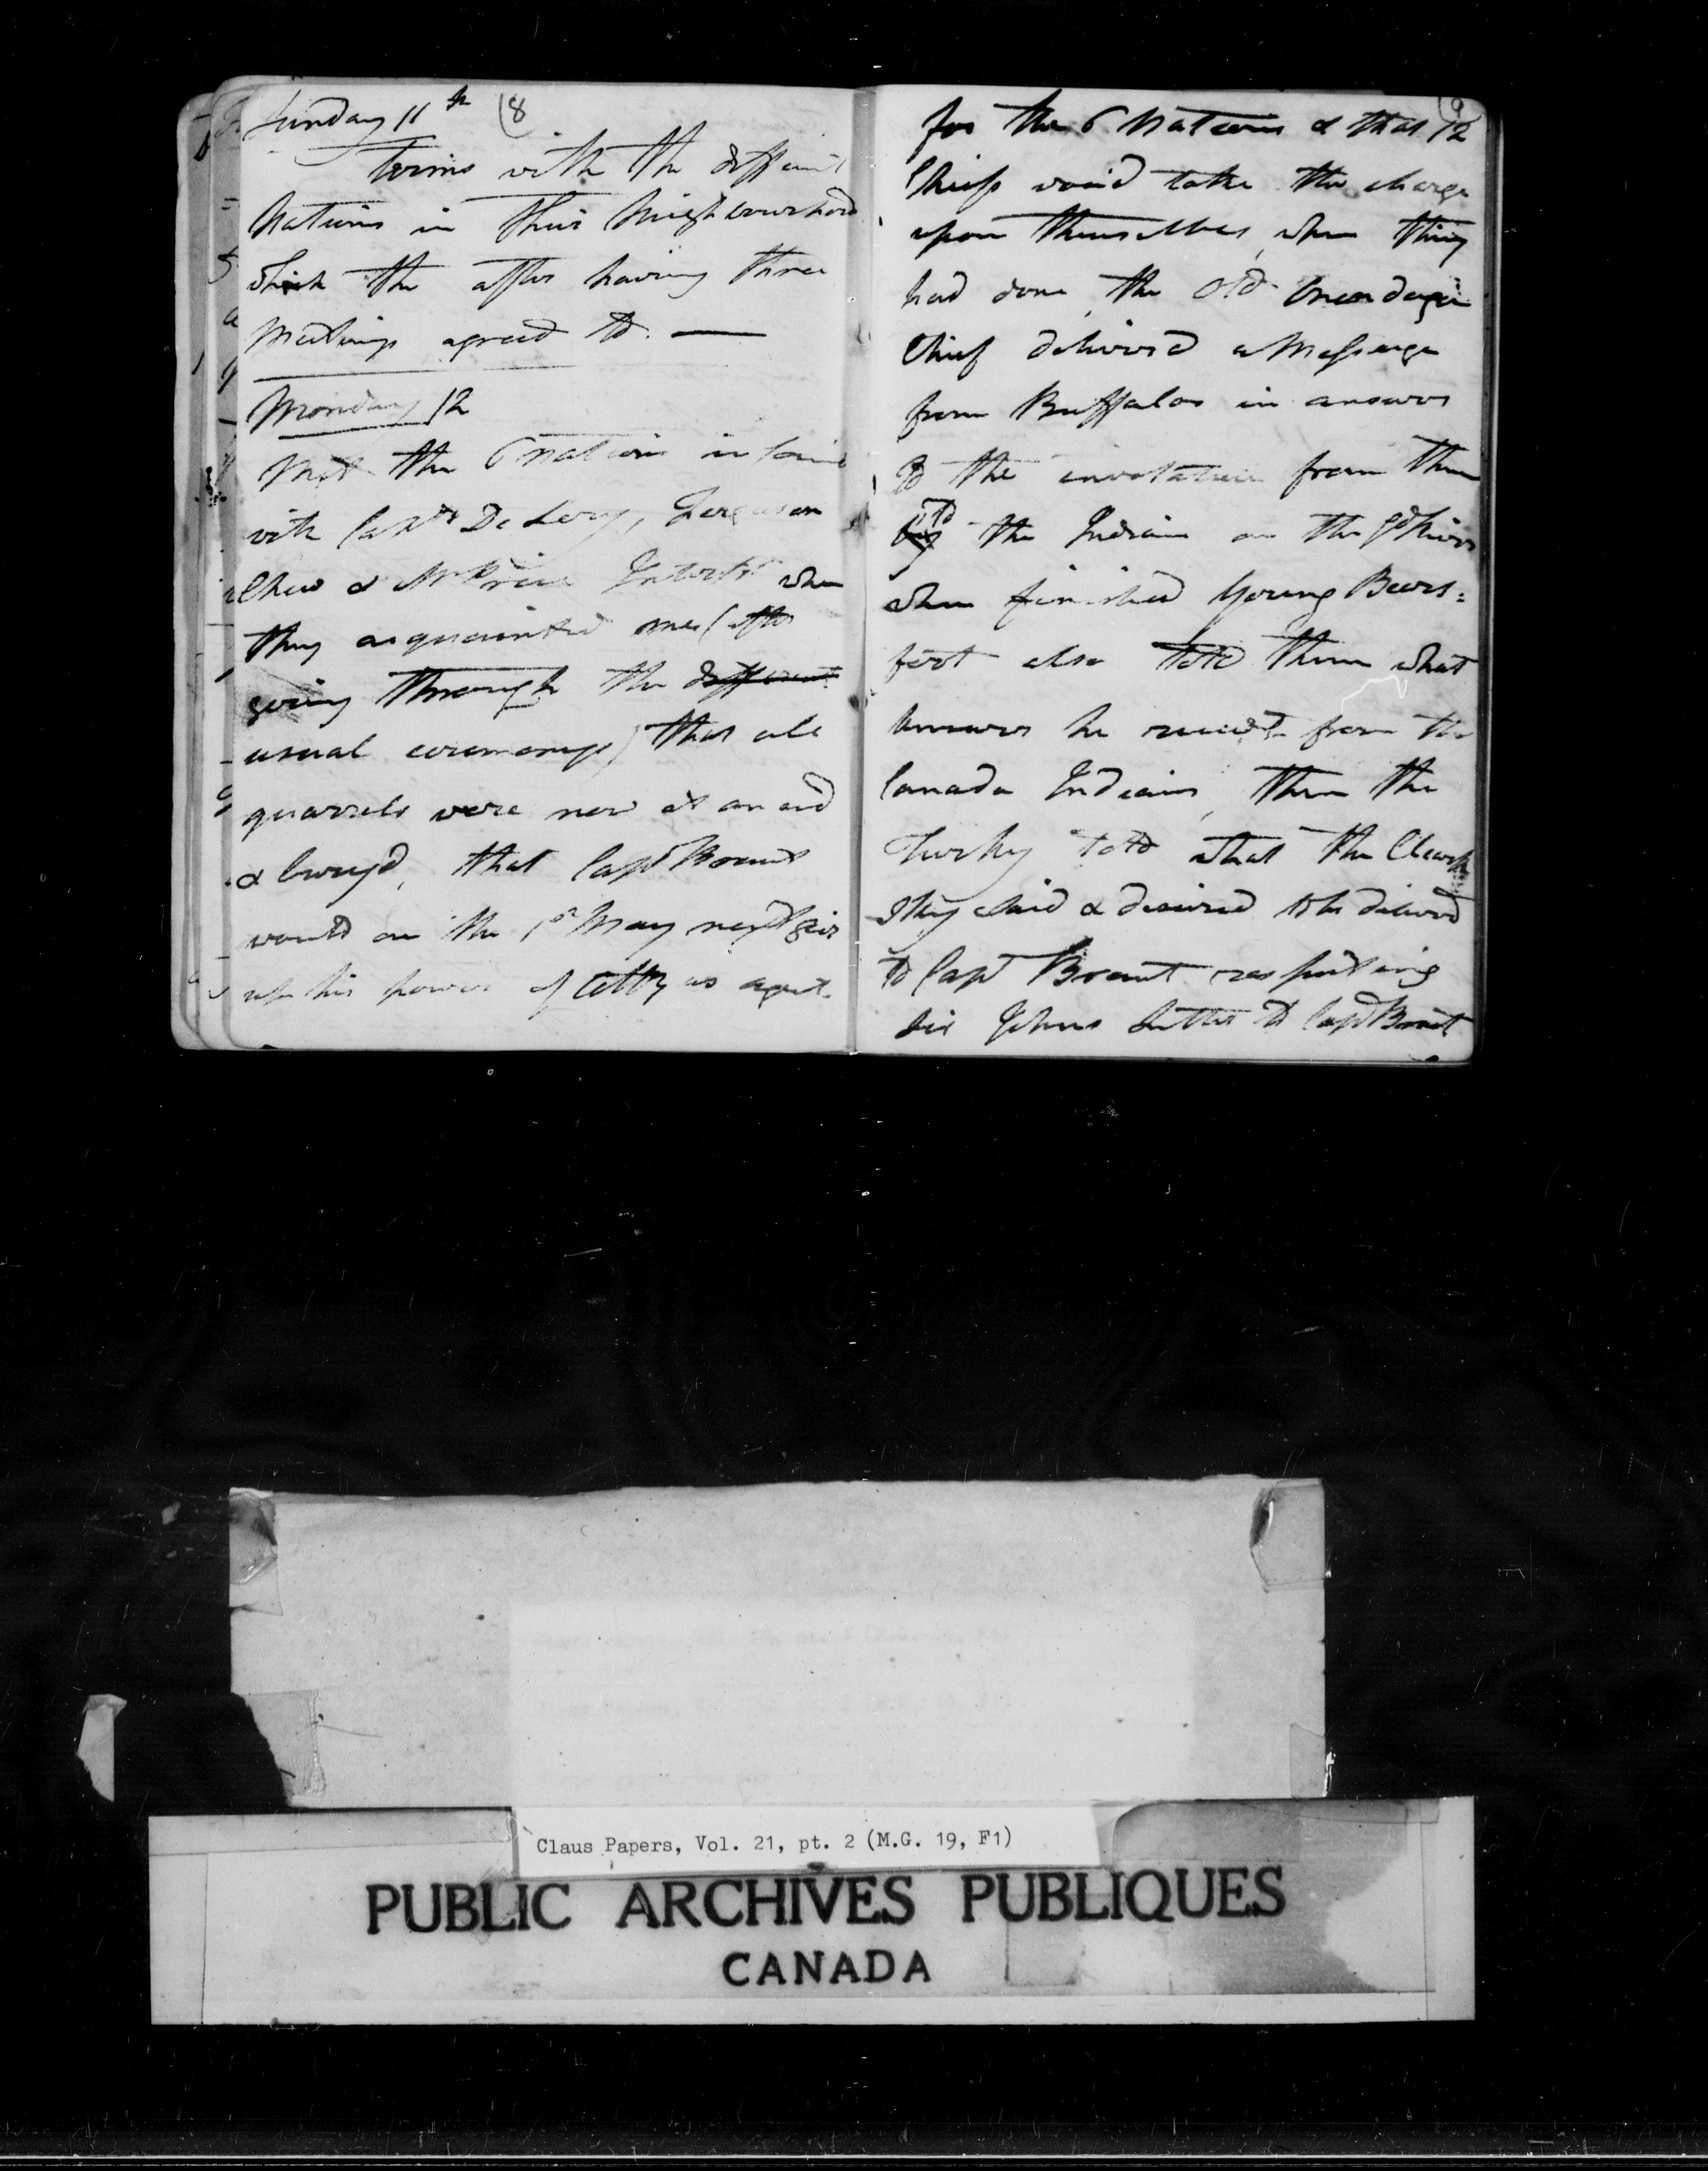 Sunday 11th (8
terms with the different
Nations in their Neighbourhood
which the after having three
Meetings agreed to. —
Monday 12
Met the 6 Nations in
with Capts DeLery, Ferguson
Chew & Mr Price Interpr when
they acquainted me (after
going through the different
usual ceremonys) that all
quarrels were now at an end
& buryd, that Capt Brant
would on the 1st May next give
up his power of Atty as agent
(9
for the 6 Nations & that 12
Chiefs would take the charge
upon themselves, when they
had done, the Old Onondaga
Chief deliverd a Message
from Buffaloe in answer
to the invitation from them
to
the Indians on the Gd River
when finished Young Beers=
foot also told them what
answer he receivd from the
Canada Indians, then the
Turkey told what the Clear
Sky said & desired to be deliverd
to Capt Brant respecting
Sir Johns Letter to Capt Brant
Claus Papers, Vol. 21, pt. 2 (M.G. 19, F1)
PUBLIC ARCHIVES PUBLIQUES
CANADA